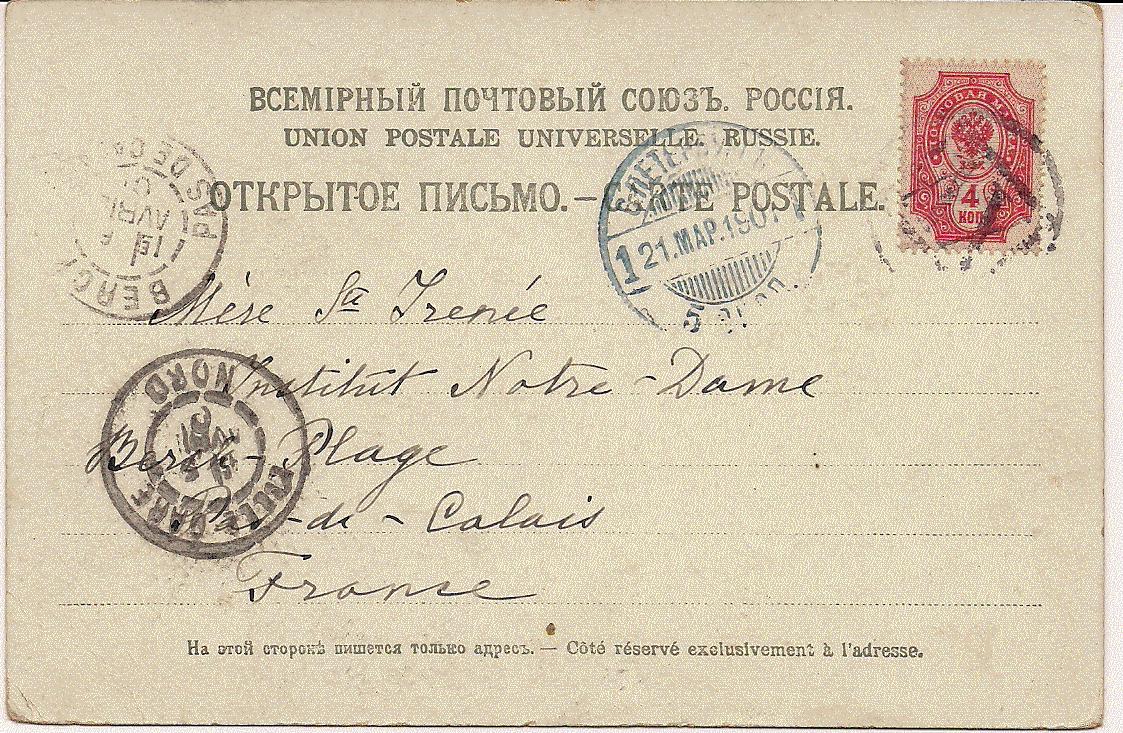 ВСЕМІРНЫЙ ПОЧТОВЫЙ СОЮЗЪ. РОССІЯ.
UNION POSTALE UNIVERSELLE. RUSSIE.
ОТКРЫТОЕ ПИСЬМО.—CARTE POSTALE.
ПОЧТОВАЯ МАРКА
4
КОП
С.ПЕТЕРБУРГЪ
1 21.МАР.1901
PAS DE CA
AVRIL
BERCK
Mère Sta Irenée
Institut Notre-Dame
Berck-Plage
Pas-de-Calais
France
GARE
NORD
На этой сторонѣ пишется только адресъ. — Côté réservé exclusivement à l'adresse.